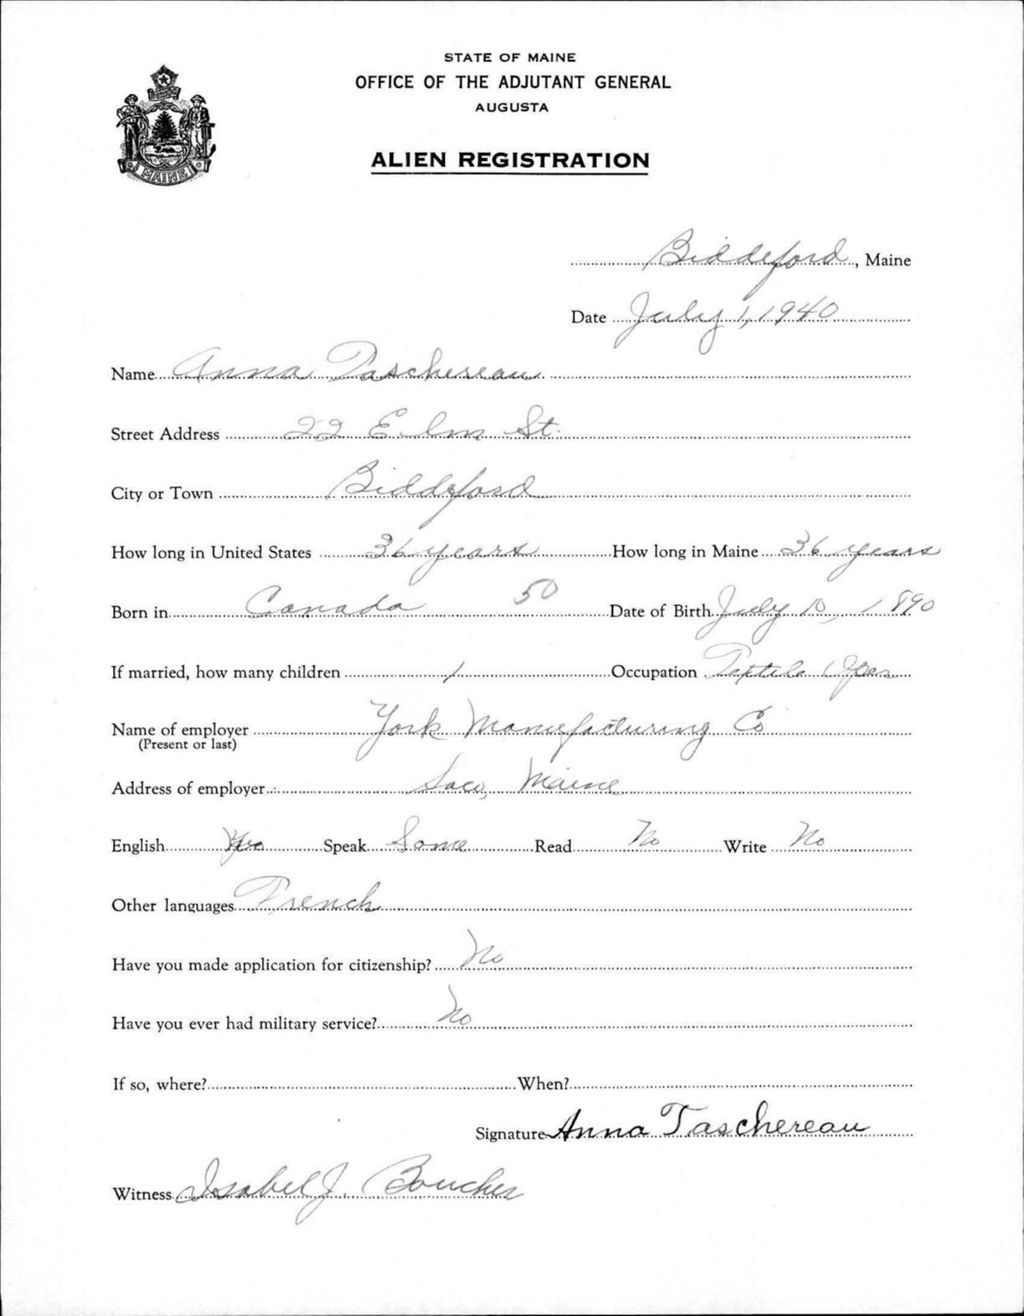 STATE OF MAINE
OFFICE OF THE ADJUTANT GENERAL
AUGUSTA
ALIEN REGISTRATION
MAINE
Biddeford, Maine
Date July 1, 1940
Name Anna Taschereau
Street Address 22 Elm St.
City or Town Biddeford
How long in United States 36 years How long in Maine 36 years
Born in Canada 50 Date of Birth July 10, 1890
If married, how many children 1 Occupation Textile Oper
Name of employer York Manufacturing Co
(Present or last)
Address of employer Saco, Maine
English Yes Speak Some Read No Write No
Other languages French
Have you made application for citizenship? No
Have you ever had military service? No
If so, where? When?
Signature Anna Taschereau
Witness Isabel J. Boucher